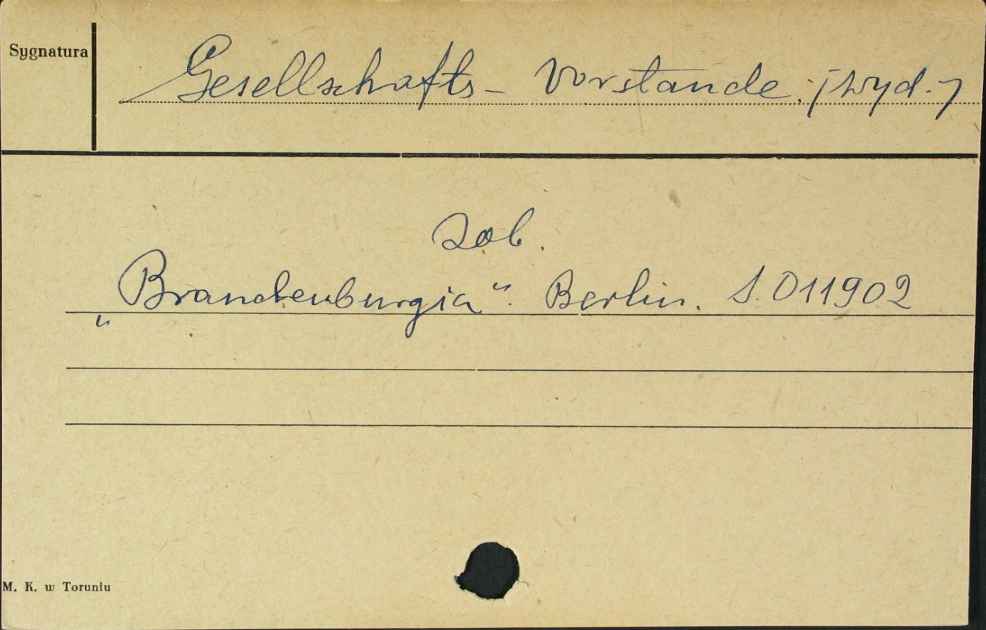 Sygnatura
Gesellschafts- Vorstande. (wyd.)
Zob.
„Brandenburgia". Berlin. S. 011902
M. K. w Toruniu